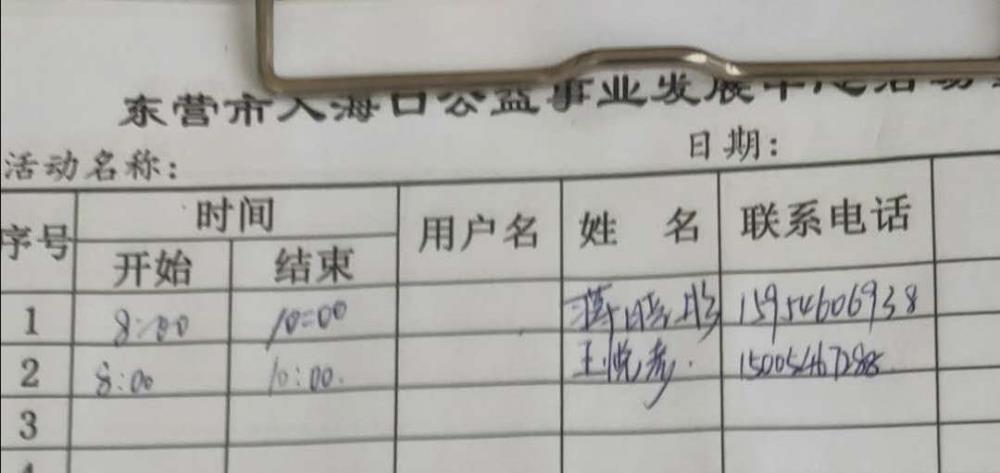 东营市入海口公益事业发展中心活动
日期：
活动名称：
序号 时间 用户名 姓 名 联系电话
开始 结束
1 8:00 10:00 15954606938
2 8:00 10:00. 王悦彪. 15005467288
3